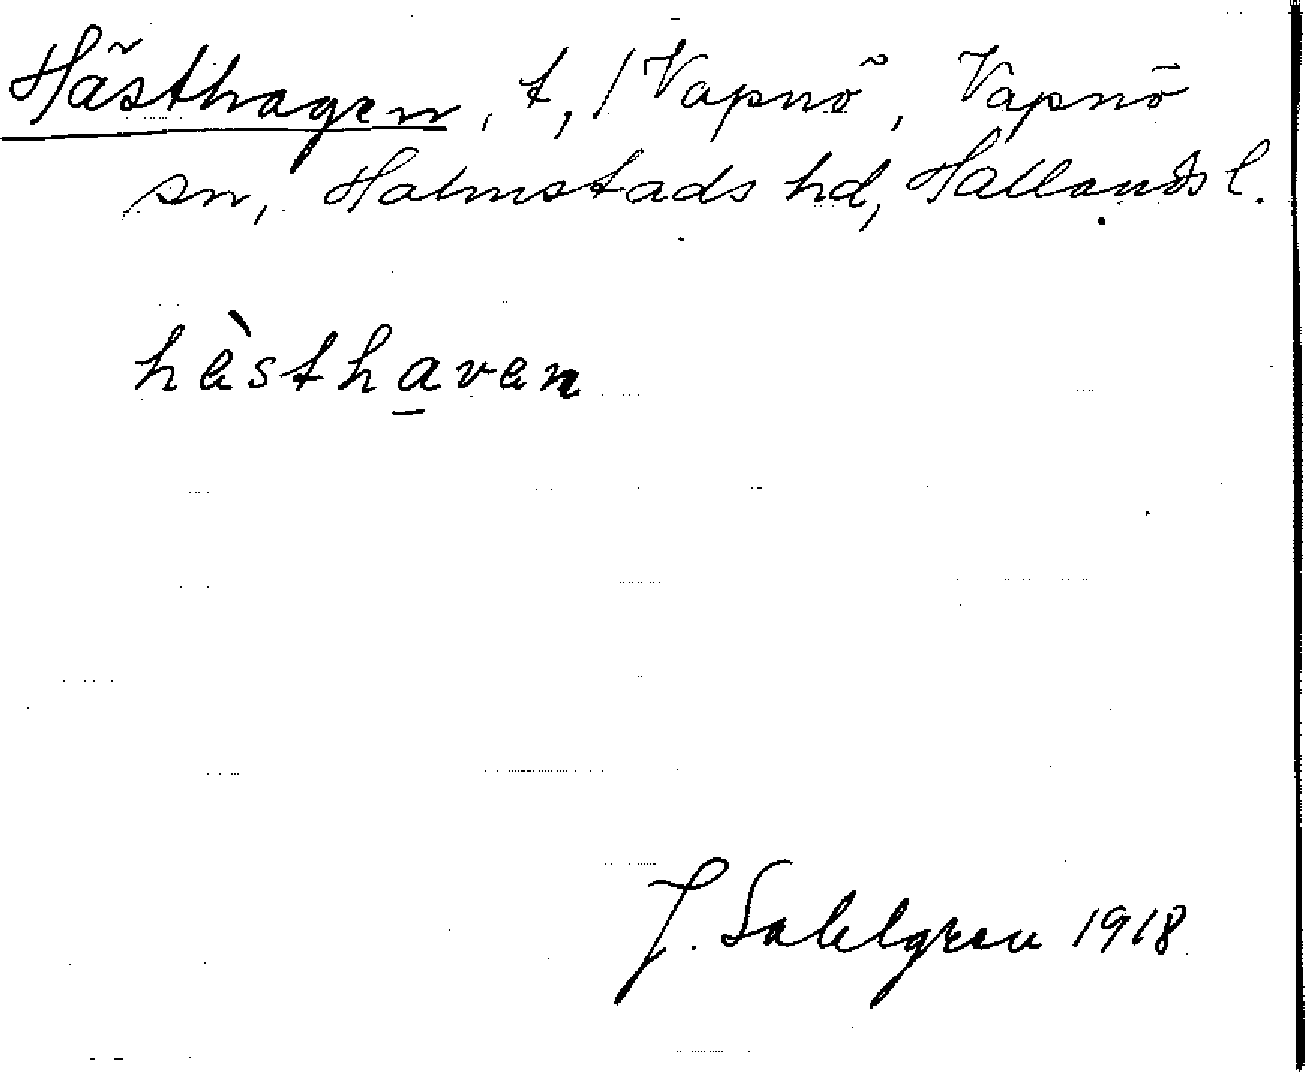 Hästhagen, t, / Vapnö, Vapnö
sn, Halmstads hd, Hallands l.
hàsthaven
J. Sahlgren 1918